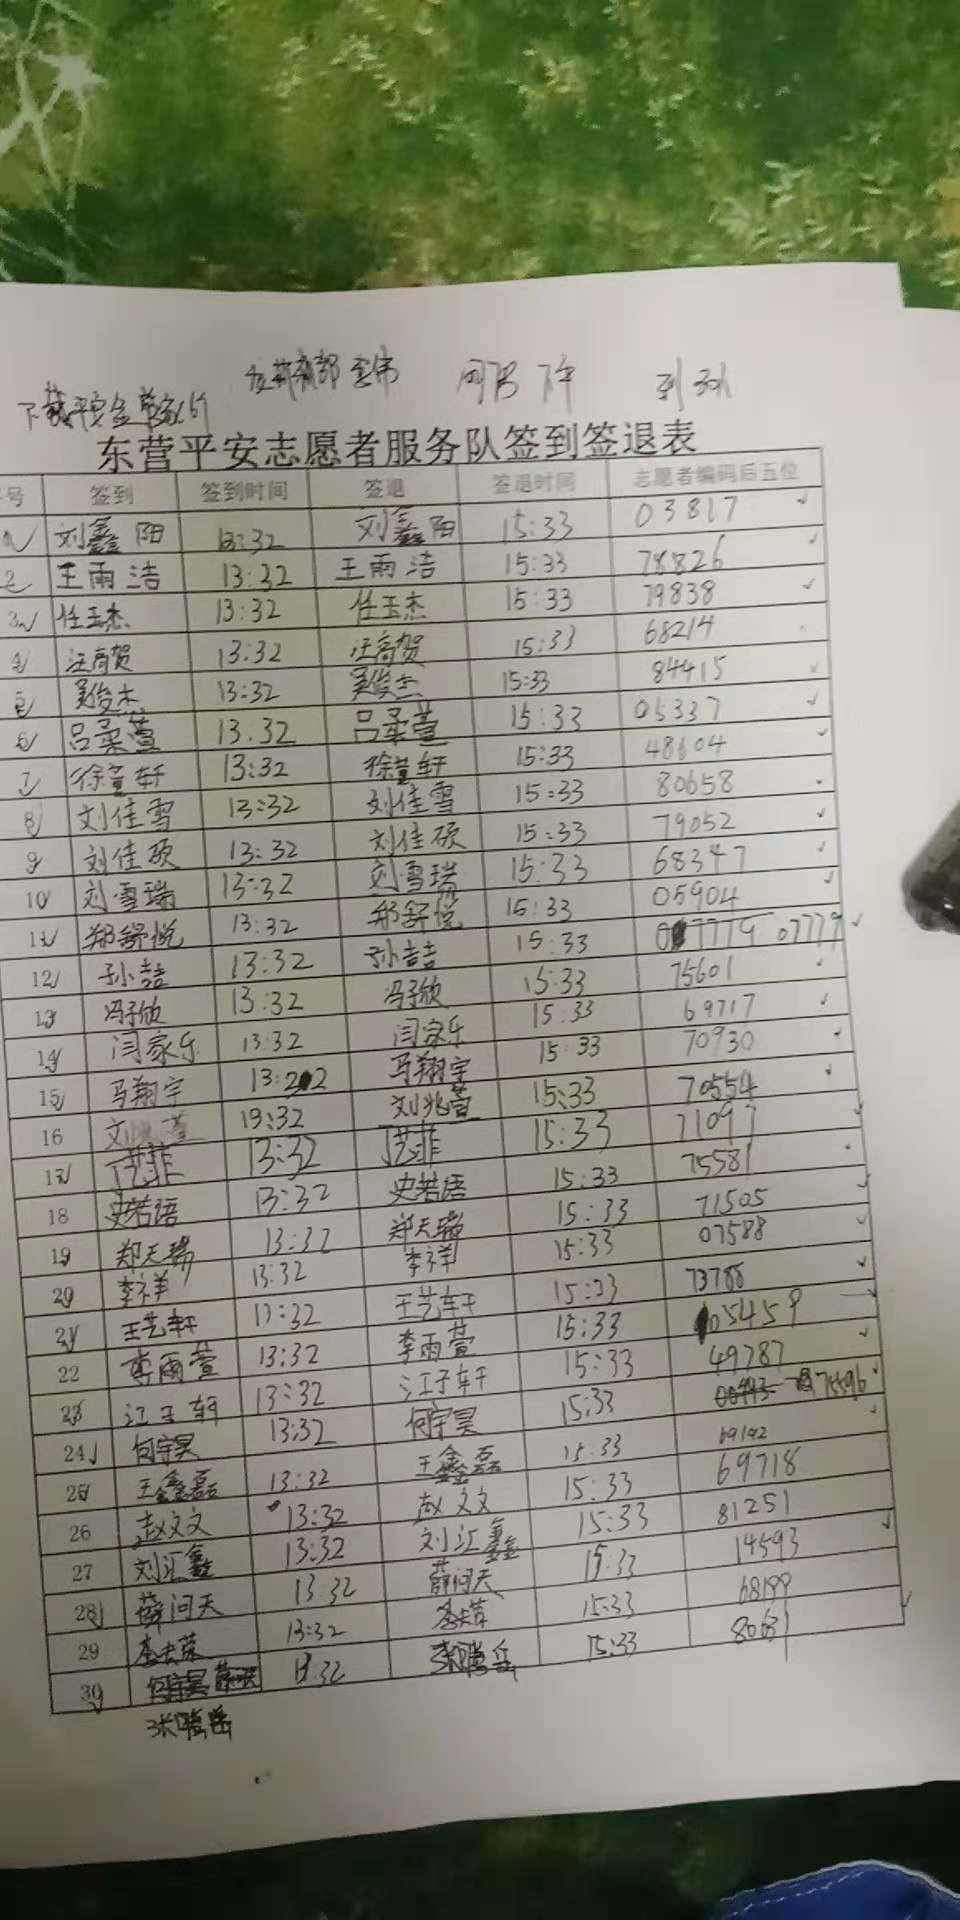 下载平安
东营平安志愿者服务队签到签退表
号 签到 签到时间 签退 签退时间 志愿者编码后五位
1 刘鑫阳 13:32 刘鑫阳 15:33 03817
2 王雨洁 13:32 王雨洁 15:33 78826
3 任玉杰 13:32 任玉杰 15:33 79838
4 汪高贺 13:32 汪高贺 15:33 68214
5 吴俊杰 13:32 吴俊杰 15:33 84415
6 吕柔萱 13.32 吕柔萱 15:33 05337
7 徐萱轩 13:32 徐萱轩 15:33 48604
8 刘佳雪 13:32 刘佳雪 15:33 80658
9 刘佳硕 13:32 刘佳硕 15:33 79052
10 刘雪瑞 13:32 刘雪瑞 15:33 68347
11 郑舒悦 13:32 郑舒悦 15:33 05904
12 孙喆 13:32 孙喆 15:33 07779
13 冯子欣 13:32 冯子欣 15:33 75601
14 闫家乐 13:32 闫家乐 15:33 69717
15 马翔宇 13:32 马翔宇 15:33 70930
16 刘兆萱 13:32 刘兆萱 15:33 70554
17 丁艺菲 13:32 丁艺菲 15:33 71097
18 史若语 13:32 史若语 15:33 75581
19 郑天瑞 13:32 郑天瑞 15:33 71505
20 李祥 13:32 李祥 15:33 07588
21 王艺轩 13:32 王艺轩 15:33 73788
22 李雨萱 13:32 李雨萱 15:33 05459
23 江子轩 13:32 江子轩 15:33 49787
24 何宇昊 13:32 何宇昊 15:33 75596
25 王鑫磊 13:32 王鑫磊 15:33 69142
26 赵文文 13:32 赵文文 15:33 69718
27 刘汇鑫 13:32 刘汇鑫 15:33 81251
28 薛问天 13:32 薛问天 15:33 14593
29 13:32 15:33 68199
30 何宇昊 13:32 张腾岳 15:33 80631
张腾岳